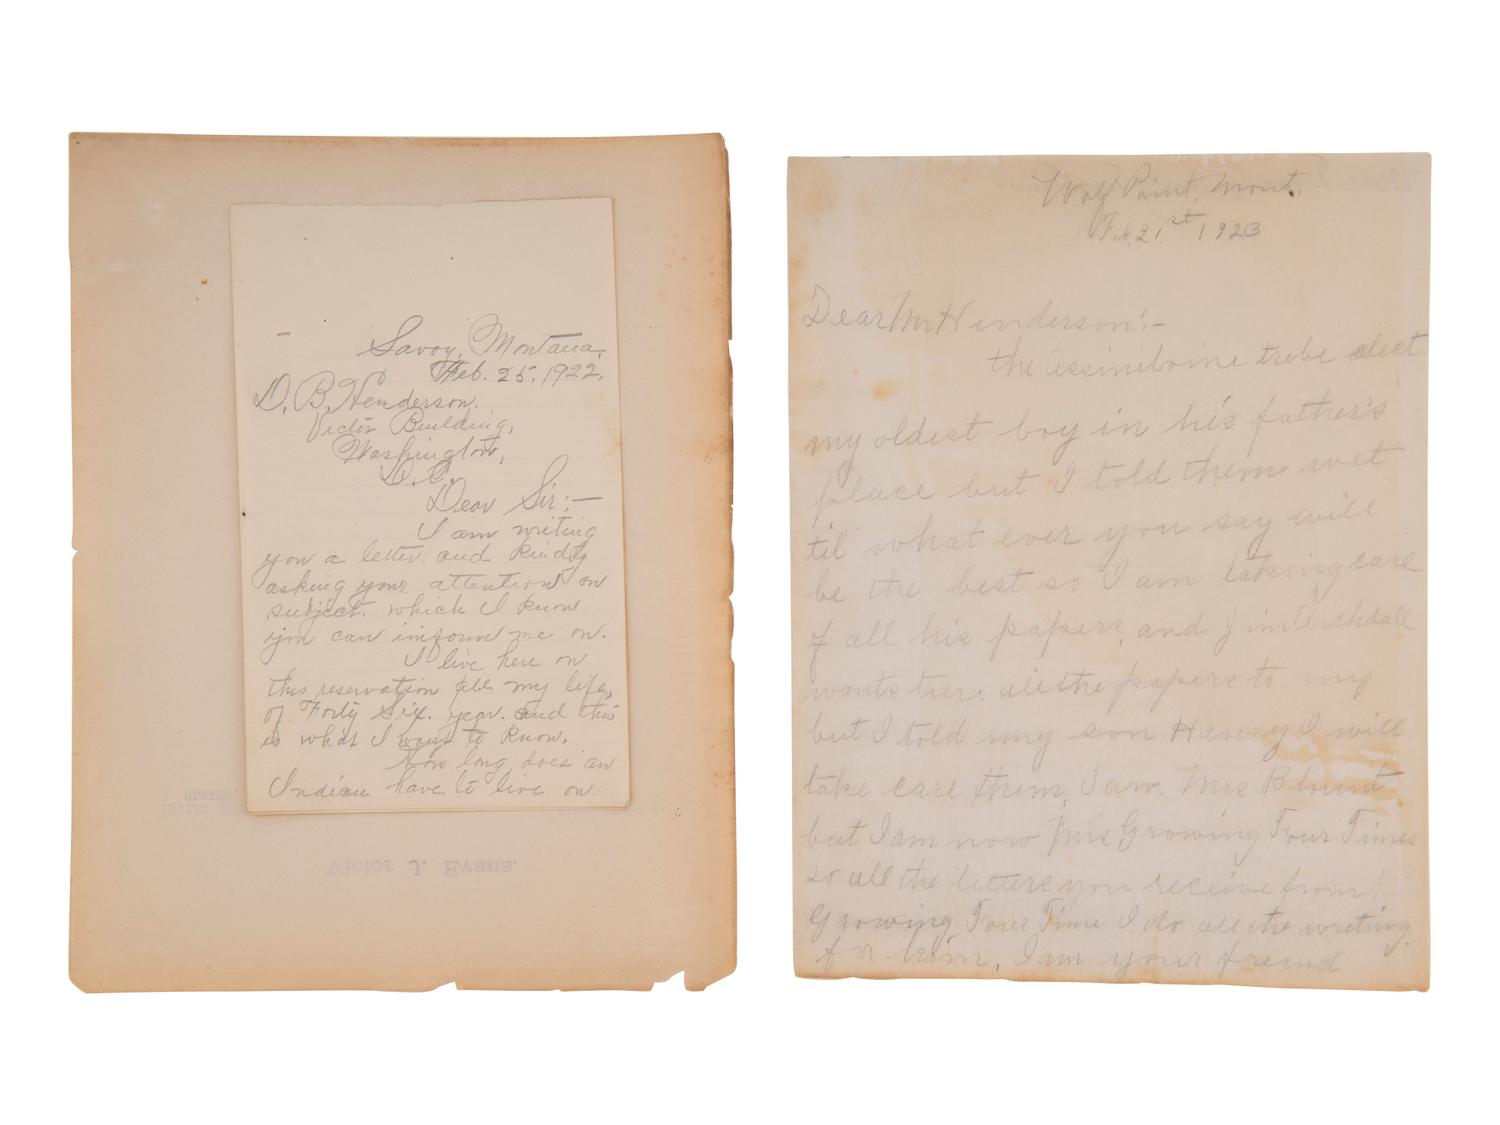 Savoy, Montana,
Feb. 25, 1922.
D. B. Henderson.
Victor Building,
Washington,
D. C.
Dear Sir:—
I am writing
you a letter and kindly
asking your attention on
subject. which I know
you can inform me on.
I live here on
this reservation all my life,
of Forty Six. year. and this
is what I want to know.
how long does an
Indian have to live on
Victor J. Evans,
Wolf Point, Mont.
Feb, 21st 1923
Dear Mr Henderson:-
the assiniboine tribe elect
my oldest boy in his father's
place but I told them wet
til what ever you say will
be the best so I am taking care
of all his papers, and Jim Archdall
wants all the papers to my
but I told my son Henry I will
take care them, I am Mrs Blount
but I am now Mrs Growing Four Times
so all the letters you receive from
Growing Four Time I do all the writing
for him, I am your friend